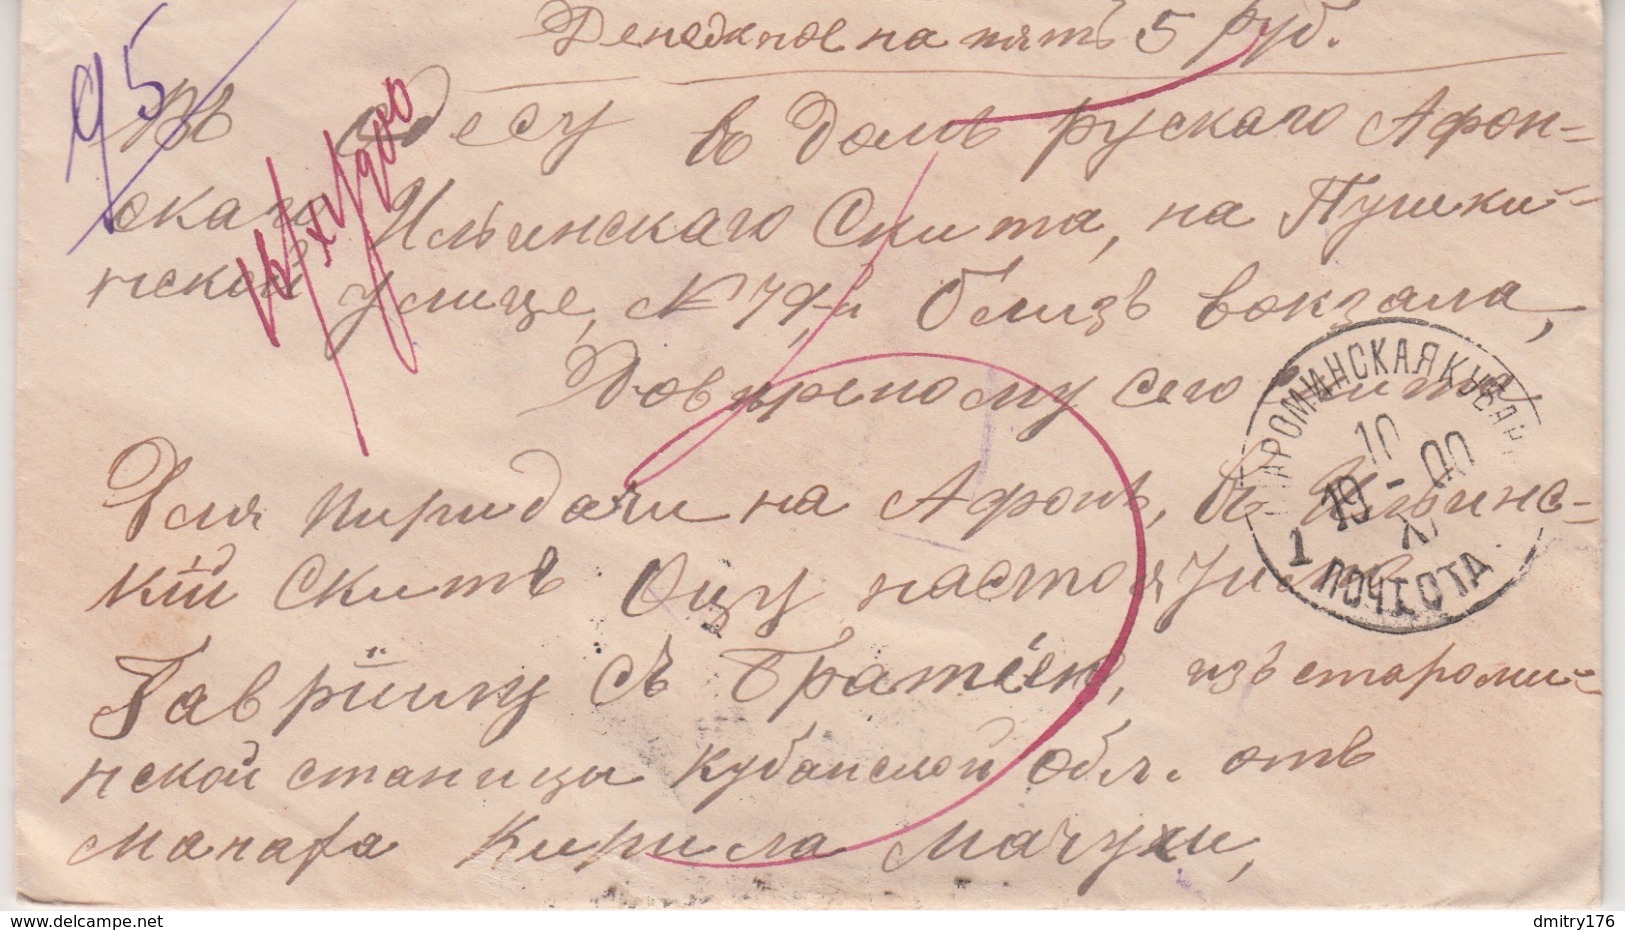 Денежное на пять 5 руб.
95
Въ Одесу въ домъ рускаго Афон-
скаго Ильинскаго Скита, на Пушки-
нской улице, № 79-й близъ вокзала,
Довѣреному сего скита
Для пиридачи на Афонъ, въ Ильинс-
кій Скитъ Отцу настоятилю
Гавріилу съ Братіею, изъ староми-
нской станицы Кубанской обл. отъ
монаха Кирила Мачухи,
СТАРОМИНСКАЯ КУБАН.
10
19 - 00
XI
1
ПОЧ. Т. ОТД.
www.delcampe.net
dmitry176